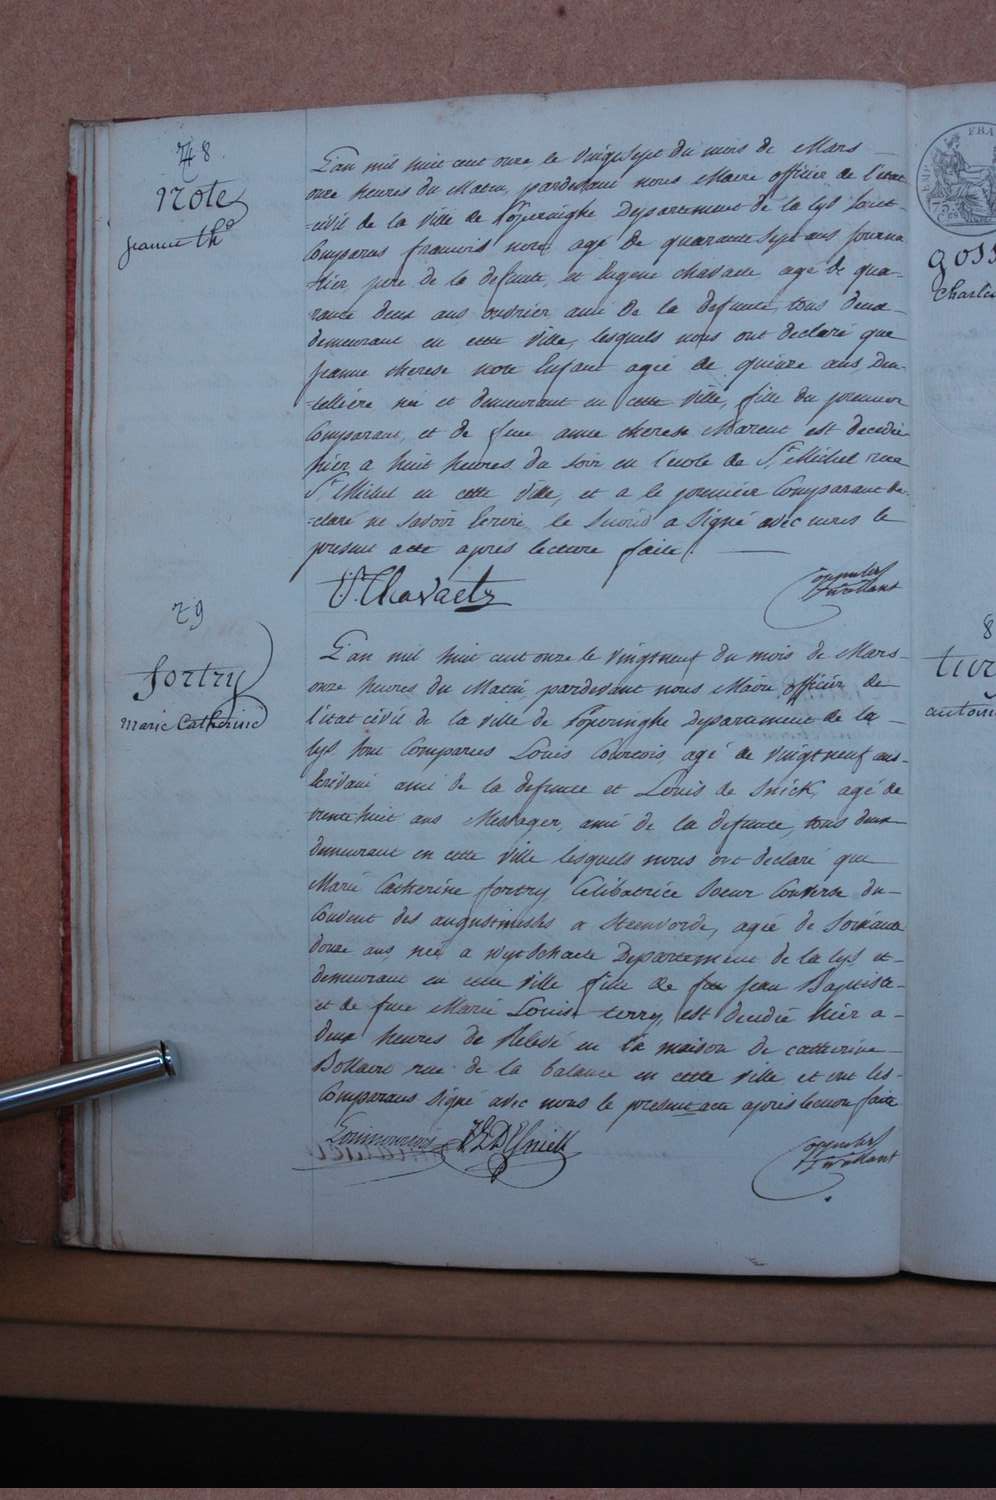 78.
Note
jeanne th.
L'an mil huit cent onze, le vingt sept du mois de Mars
onze heures du Matin, pardevant nous Maire officier de l'état
-civil de la ville de Poperinghe Departement de la lys sont
Comparus francois note agé de quarante sept ans journa
-lier, pere de la defunte, et Eugene chavaete agé de qua-
rante deux ans, ouvrier ami de la defunte, tous deux-
demeurant en cette ville, lesquels nous ont declaré que
jeanne therese note Enfant agée de quinze ans Den-
-tellière née et demeurant en cette ville, fille du premier
Comparant, et de feue anne therese Marent est decedée
hier a huit heures du soir en l'école de St Michel rue
St Michel en cette ville, et a le premier Comparant de-
-claré ne savoir Ecrire, le second a signé avec nous le
present acte apres lecture faite.
79
fortry
marie Catherine
L'an mil huit cent onze le vingtneuf du mois de Mars-
onze heures du Matin, pardevant nous Maire officier de
l'état civil de la ville de Poperinghe Departement de la -
lys sont Comparus Louis Courtois, agé de vingtneuf ans-
Ecrivain ami de la defunte et Louis de Snick, agé de
trente huit ans Messager, ami de la defunte, tous deux
demeurant en cette ville lesquels nous ont declaré que
Marie Catherine fortry, Célibatrice Soeur Converse du-
Couvent des augustinesses a Steenvorde, agée de soixante
douze ans née a wytschaete Departement de la lys et-
demeurant en cette ville fille de feu jean Baptiste-
et de feue Marie Louise terry, est decedée hier a-
deux heures de Relevé en la maison de catherine-
Bollaere rue de la balance en cette ville et ont les-
Comparans signé avec nous le present acte après lecture faite
FRA
EMP
goss
Charles
8
tur
antoin